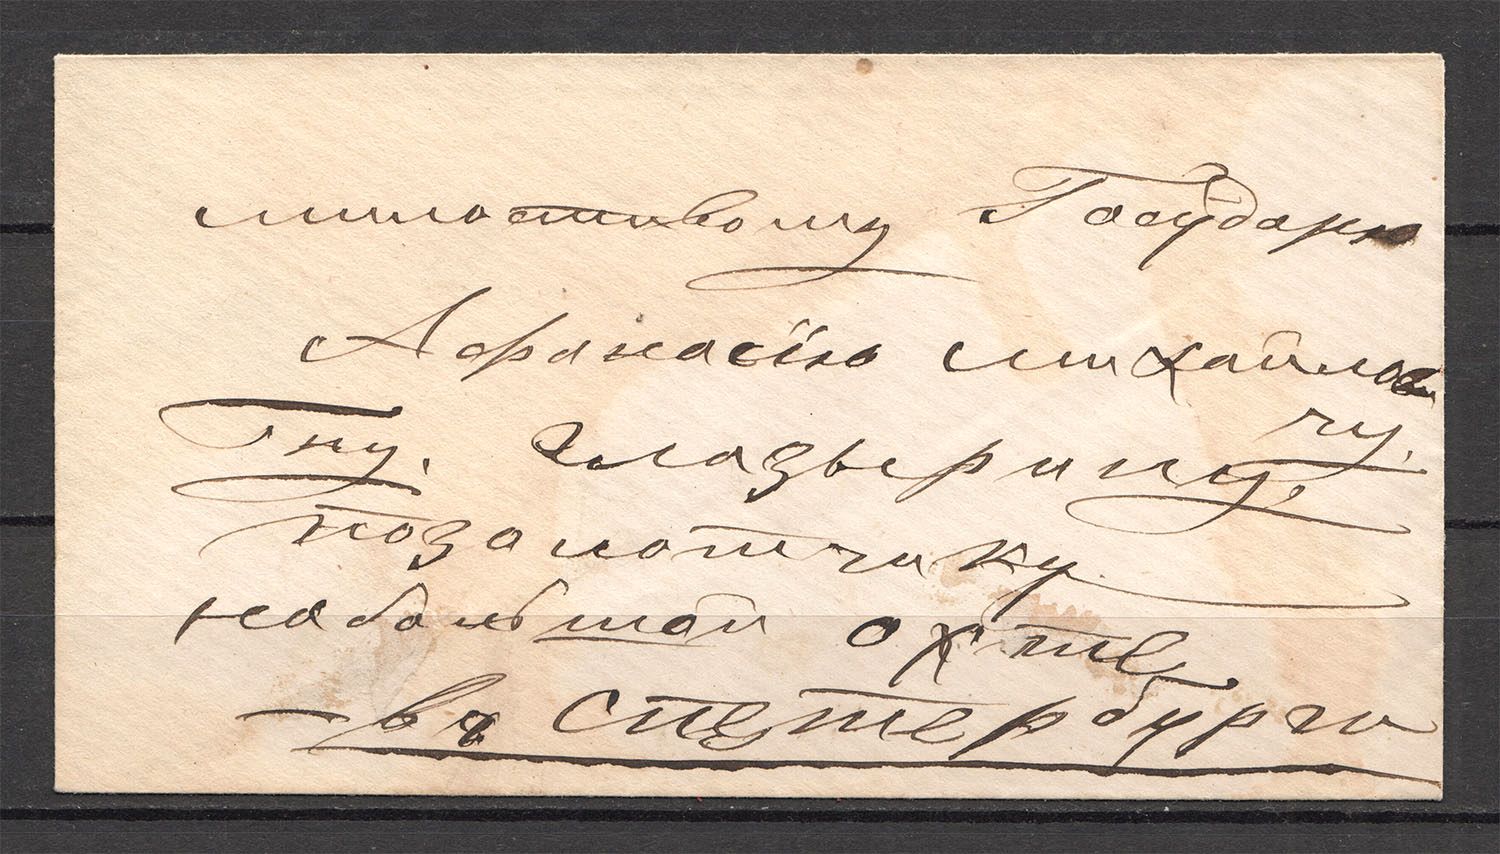 милостивому Государю
Афонасію михайлови
чу.
Гну. Глазырину,
позолотчику
на большой охте
въ Спетербурги